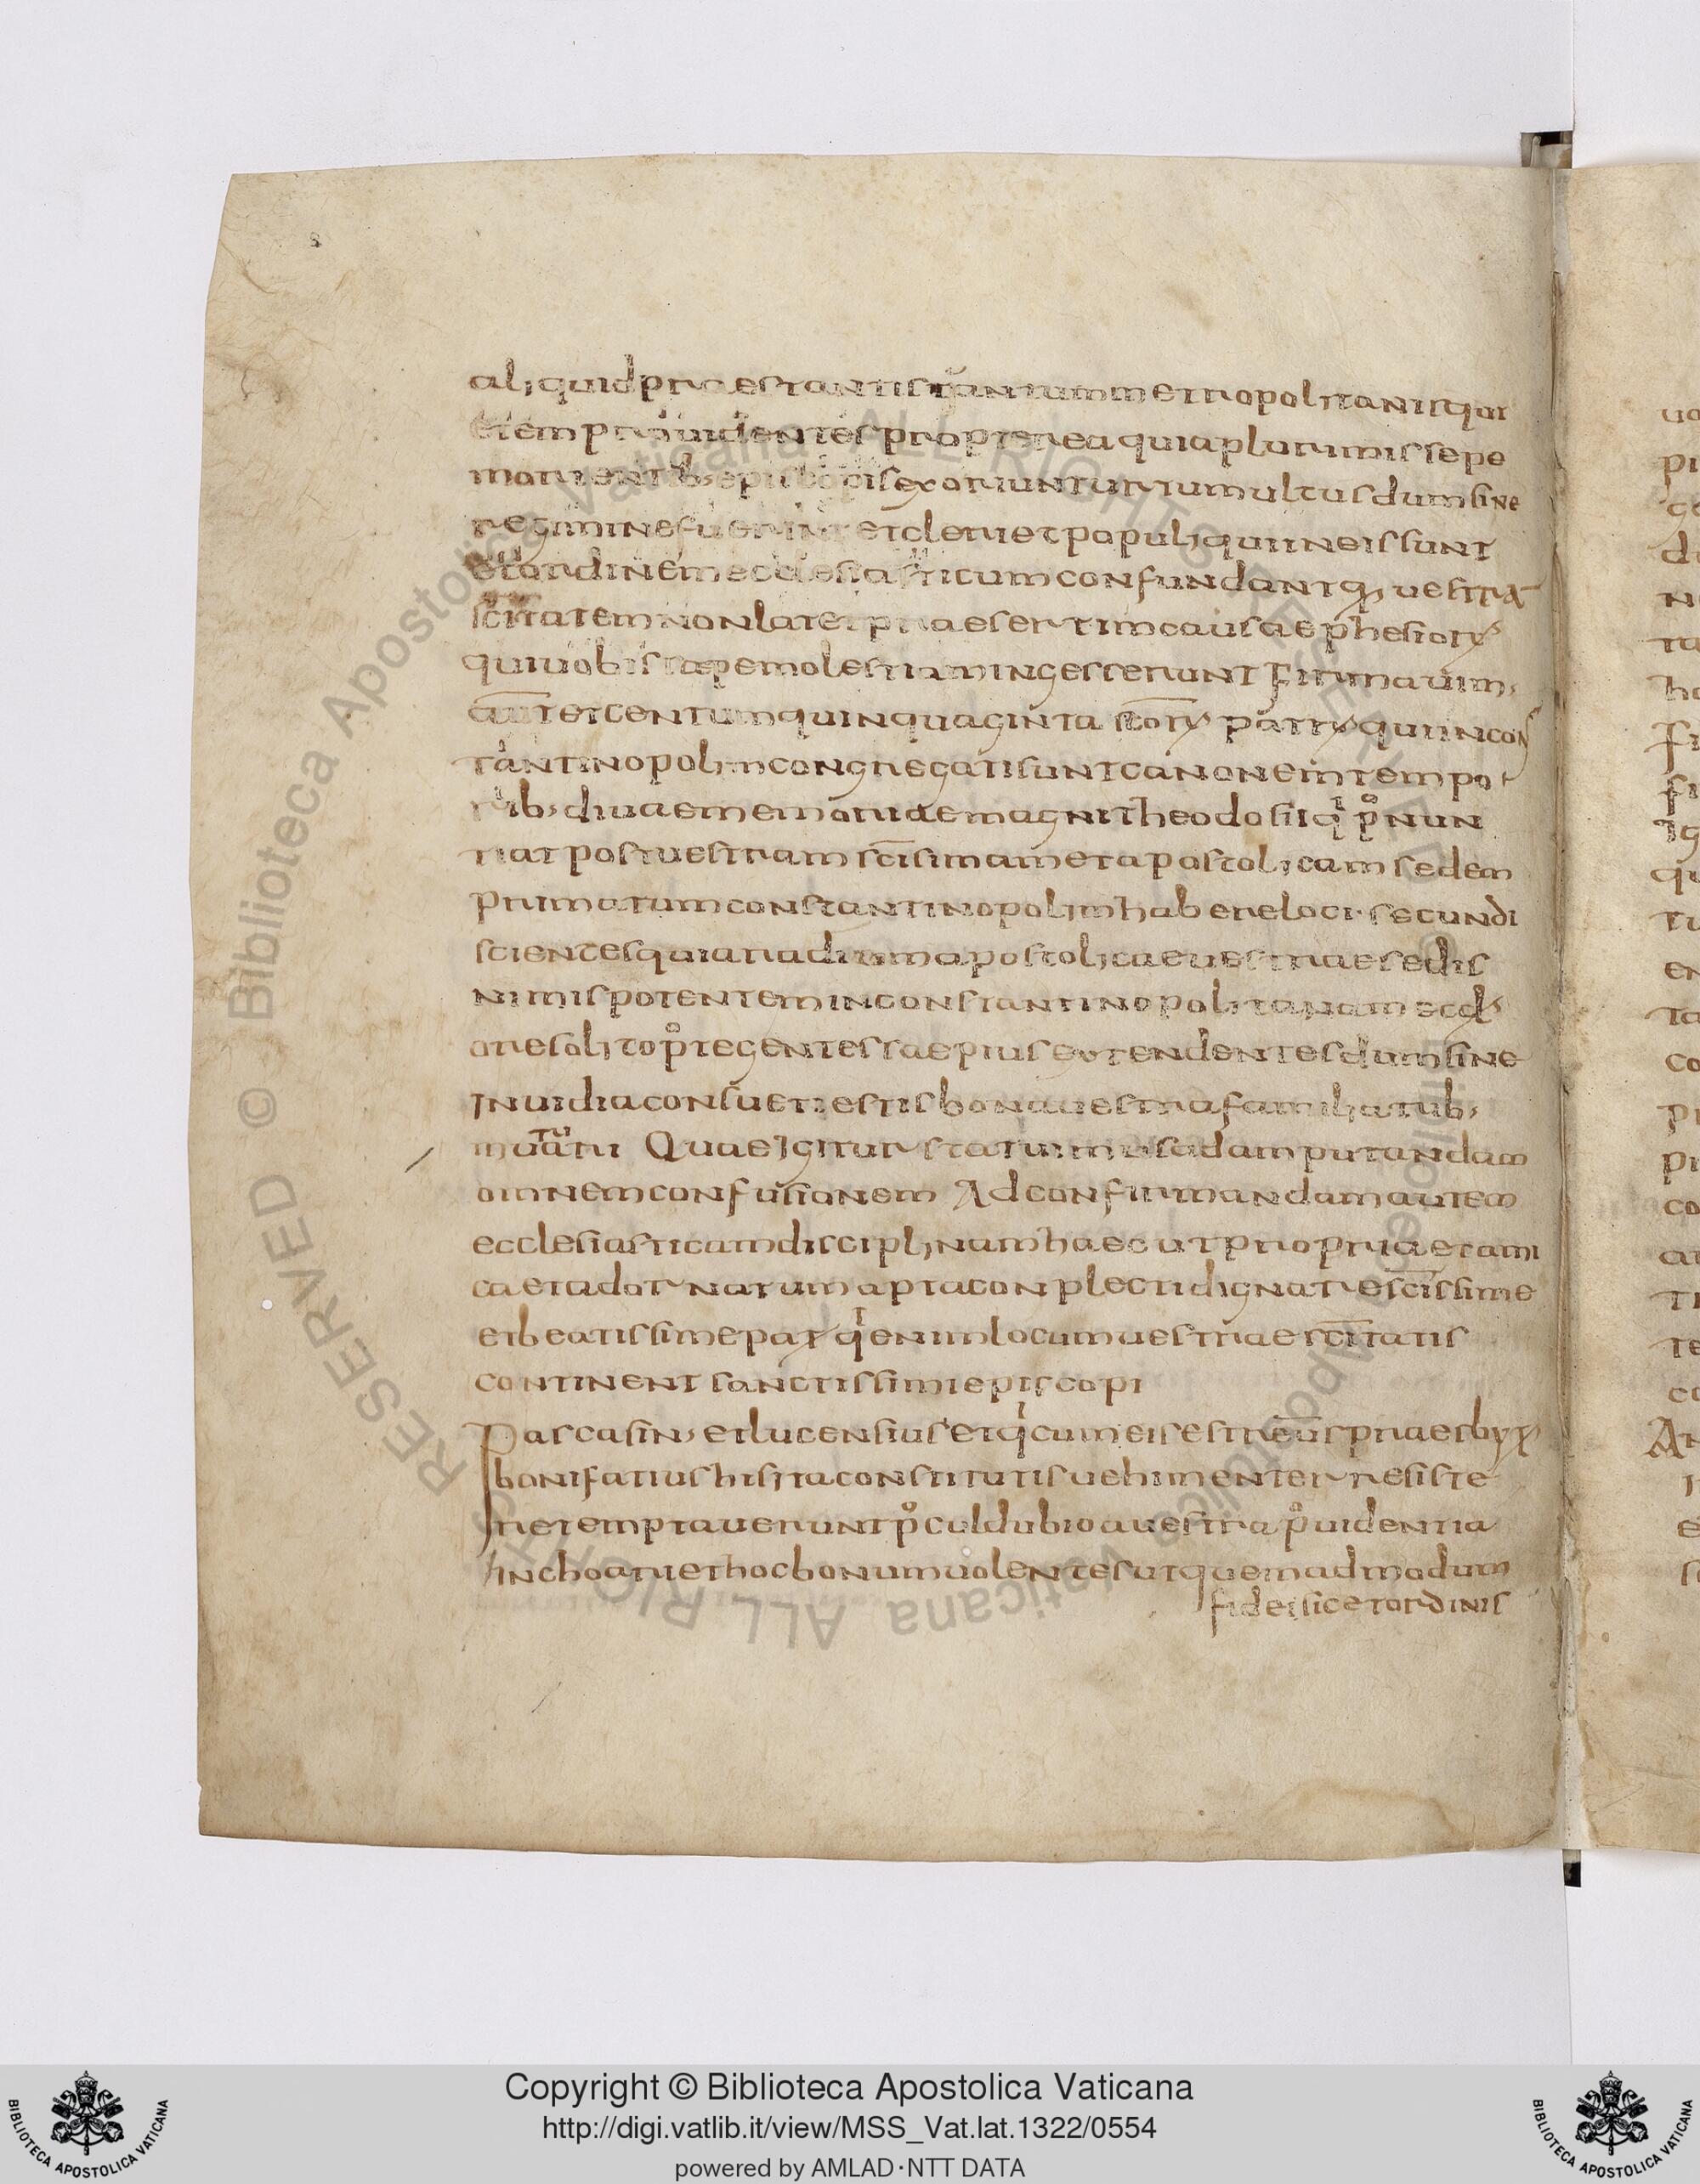 aliquid praestantis tantum metropolitanis qui
etem prouidentes propterea quia plurimis sepe
morientib; episcopis exoriuntur tumultus dum sine
regimine fuerint et cleri et populi qui in eis sunt
et ordinem ecclesiasticum confundant q; uestrā
sc̄itatem non latet praesertim causa ephesior̄
qui uobis saepe molestiam ingesserunt Firmauim;
aut̄ et centum quinquaginta sc̄or̄ patr̄ qui in cons
tantinopolim congregati sunt canonem tempo
rib; diuae memoriae magni theodosii q̄ p̊nun
tiat post uestram sc̄isimam et apostolicam sedem
primatum constantinopolim habere loci secundi
scientes quia radium apostolicae uestrae sedis
nimis potentem in constantinopolitanam eccl̄
ore solito p̊tegentes saepius extendentes dum sine
inuidia consueti estis bona uestra familiarib;
mutuāri Quae igitur statuimus ad amputandam
omnem confusionem Ad confirmandam autem
ecclesiasticam disciplinam haec ut propria et ami
ca et ad ornatum apta conplecti dignare sc̄issime
et beatissime pat̄ q̄ enim locum uestrae sc̄itatis
continent sanctissimi episcopi
Pascasin; et lucensius et q̄ cum eis est reūs praesbyt̄
bonifatius his ita constitutis uehimenter resiste
re temptauerunt p̊cul dubio a uestra p̊uidentia
inchoari et hoc bonum uolentes ut quemadmodum
fidei sic et ordinis
Copyright © Biblioteca Apostolica Vaticana
http://digi.vatlib.it/view/MSS_Vat.lat.1322/0554
powered by AMLAD·NTT DATA